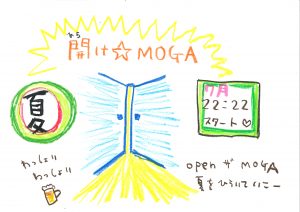 開け☆MOGA
ひら
夏
7月
22:22
スタート♡
わっしょい
わっしょい
open ザ MOGA
夏をひらいていこー